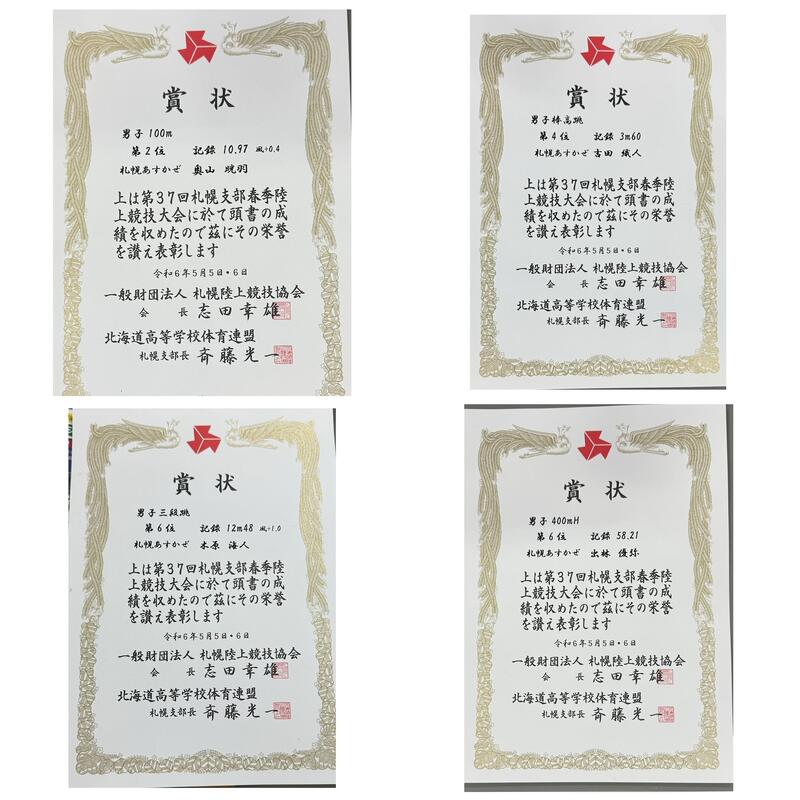 賞状
男子 100m
第2位 記録 10.97 風+0.4
札幌あすかぜ 奥山 晄羽
上は第37回札幌支部春季陸
上競技大会に於て頭書の成
績を収めたので茲にその栄誉
を讃え表彰します
令和6年5月5日・6日
一般財団法人 札幌陸上競技協会
会 長 志田幸雄
北海道高等学校体育連盟
札幌支部長 斉藤光一
賞状
男子棒高跳
第4位 記録 3m60
札幌あすかぜ 吉田 織人
上は第37回札幌支部春季陸
上競技大会に於て頭書の成
績を収めたので茲にその栄誉
を讃え表彰します
令和6年5月5日・6日
一般財団法人 札幌陸上競技協会
会 長 志田幸雄
北海道高等学校体育連盟
札幌支部長 斉藤光一
賞状
男子三段跳
第6位 記録 12m48 風+1.0
札幌あすかぜ 木原 海人
上は第37回札幌支部春季陸
上競技大会に於て頭書の成
績を収めたので茲にその栄誉
を讃え表彰します
令和6年5月5日・6日
一般財団法人 札幌陸上競技協会
会 長 志田幸雄
北海道高等学校体育連盟
札幌支部長 斉藤光一
賞状
男子 400mH
第6位 記録 58.21
札幌あすかぜ 出林 優弥
上は第37回札幌支部春季陸
上競技大会に於て頭書の成
績を収めたので茲にその栄誉
を讃え表彰します
令和6年5月5日・6日
一般財団法人 札幌陸上競技協会
会 長 志田幸雄
北海道高等学校体育連盟
札幌支部長 斉藤光一